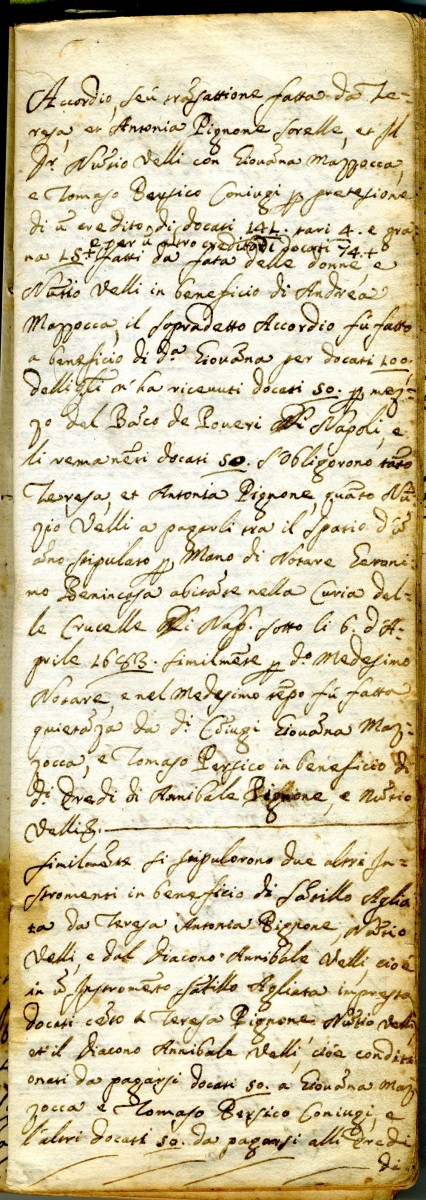 Accordio, seù trãsattione fatta da Te-
resa, et Antonia Pignone sorelle, et Il
Sr. Nuntio Velli con Giouãna Mazzocca,
e Tomaso Persico Coniugi p pretesione
di ũ credito di docati 141. tarì 4. e gra
e per ũ altro credito di docati 74.+
na 15+ fatti da fata delle donne, e
Nũtio Velli in beneficio di Andrea
Mazzocca, il sopradetto Accordio fù fatto
a beneficio di d.a Giouãna per docati 100.
delli qli n'ha riceuuti docati 50. p mez-
zo del Bãco de Poueri Di Napoli, e
li remanẽti docati 50. s'obligorono tãto
Teresa, et Antonia Pignone, quãto Nũ-
zio Velli a pagarli tra il spatio d'ũ
ãno stipulato p Mano di Notare Geroni-
mo Benincasa abitãte nella Curia del-
le Crucelle Di Nap. sotto li 6. d'A-
prile 1683. similmẽte p d.o Medesimo
Notare, e nel Medesimo tẽpo fù fatta
quietãza da d.i Cõiugi Giouãna Maz-
zocca, e Tomaso Persico in beneficio di
d.i Eredi di Annibale Pignone, e Nũtio
Velli
Similmẽte si stipulorono due altri In-
stromenti in beneficio di Sãtillo Aglia
ta da Teresa Antonia Pignone, Nũtio
Velli, e dal Diacono Annibale Velli, cioè
in ũ Instromẽto Sãtillo Agliata impresta
docati cẽto a Teresa Pignone Nũtio Velli
et il Diacono Annibale Velli, cioè conditi
onati da pagarsi docati 50. a Giouãna Maz
zocca e Tomaso Persico Coniugi, e
l'altri docati 50. da pagarsi alli Eredi
di